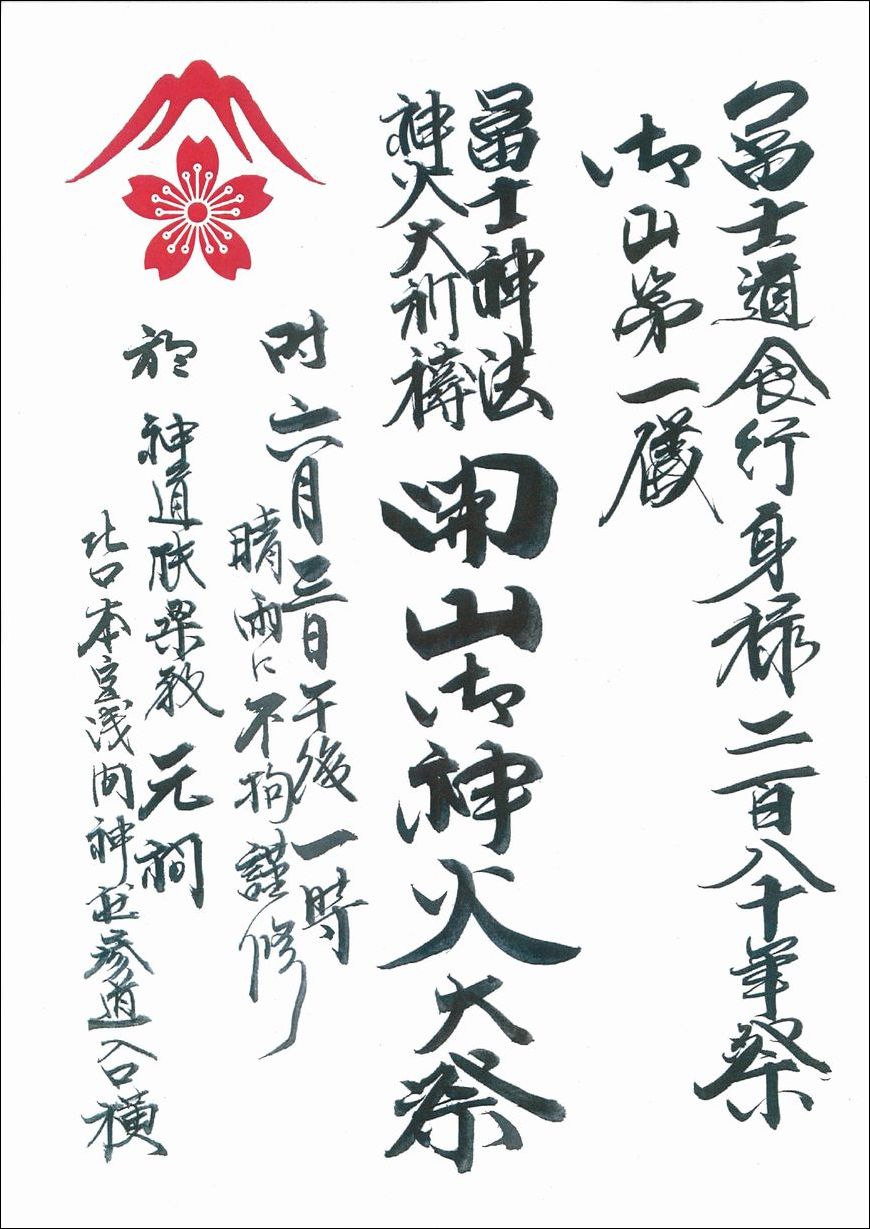 冨士道食行身禄二百八十年祭
御山第一儀
冨士神法
神火大祈禱
開山御神火大祭
時 六月三日午後一時
晴雨に不拘謹修
於 神道扶桑教 元祠
北口本宮浅間神社参道入口横